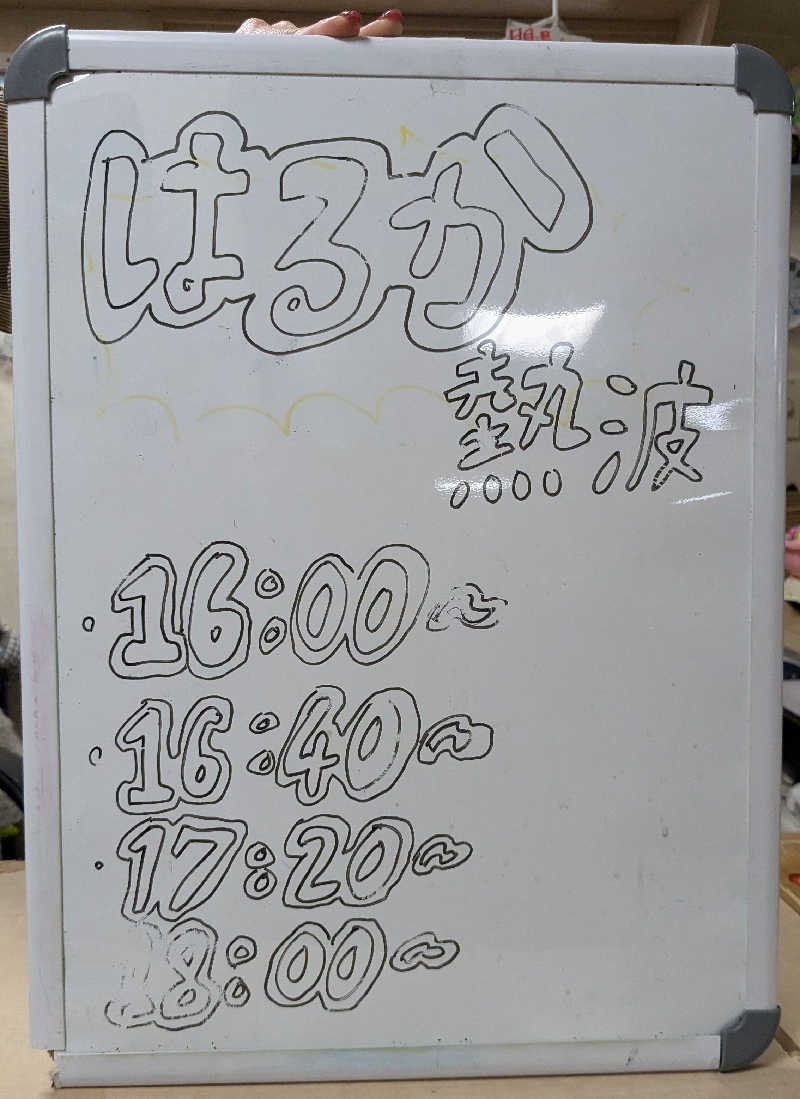 はるか
熱波
・16:00~
・16:40~
・17:20~
18:00~